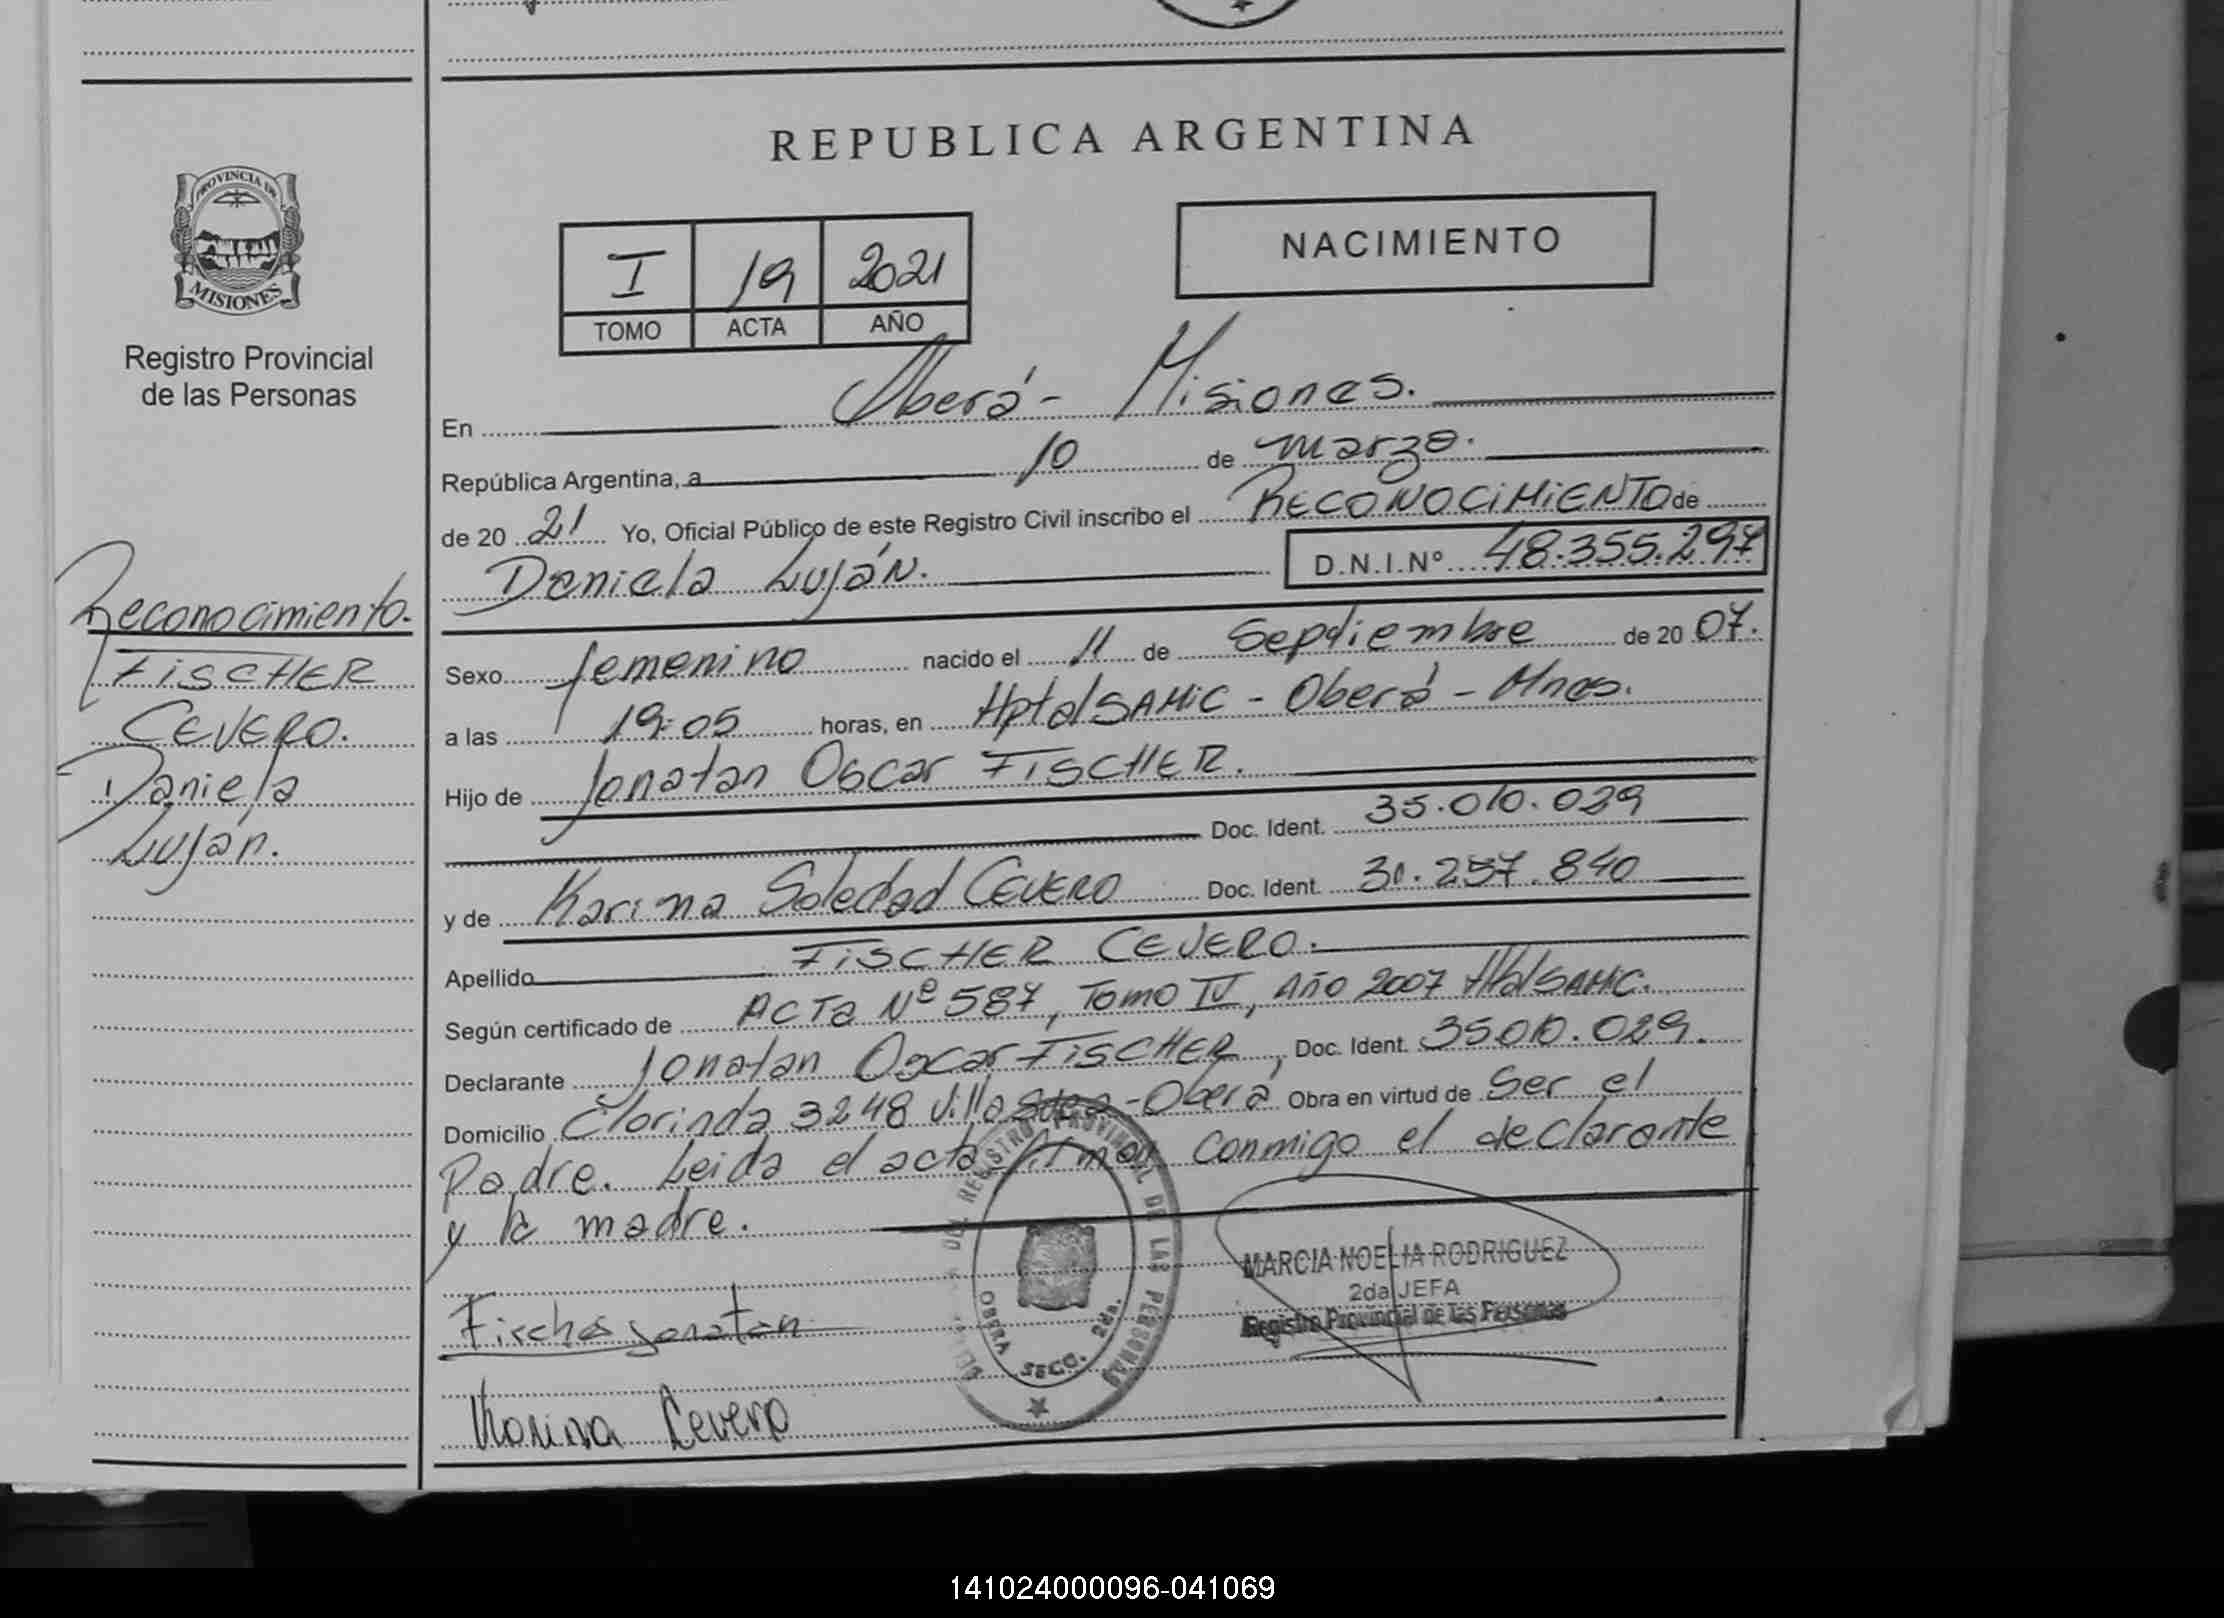 REPUBLICA ARGENTINA
PROVINCIA DE
MISIONES
Registro Provincial
de las Personas
I 19 2021
TOMO ACTA AÑO
NACIMIENTO
En Oberá - Misiones.
República Argentina, a 10 de marzo.
de 20 21 Yo, Oficial Público de este Registro Civil inscribo el RECONOCIMIENTO de
Daniela Luján. D.N.I.Nº 48.355.297
Reconocimiento.
FISCHER
CEVERO.
Daniela
Luján.
Sexo femenino nacido el 11 de Septiembre de 20 07.
a las 19:05 horas, en Hptal SAMIC - Oberá - Mnes.
Hijo de Jonatan Oscar FISCHER.
Doc. Ident. 35.010.029
y de Karina Soledad CEVERO Doc. Ident. 257.840
Apellido FISCHER CEVERO.
Según certificado de ACTA Nº 587, Tomo IV, Año 2007 SAMIC.
Declarante Jonatan Oscar FISCHER, Doc. Ident. 35.010.029.
Domicilio Clorinda 3248 Villa - Oberá Obra en virtud de Ser el
Padre. Leida el acta firman conmigo el declarante
y la madre.
DEL REGISTRO PROVINCIAL DE LAS PERSONAS
OBERA SECC. 2da.
MARCIA NOELIA RODRIGUEZ
2da JEFA
Registro Provincial de las Personas
Fischer Jonatan
Karina Cevero
141024000096-041069